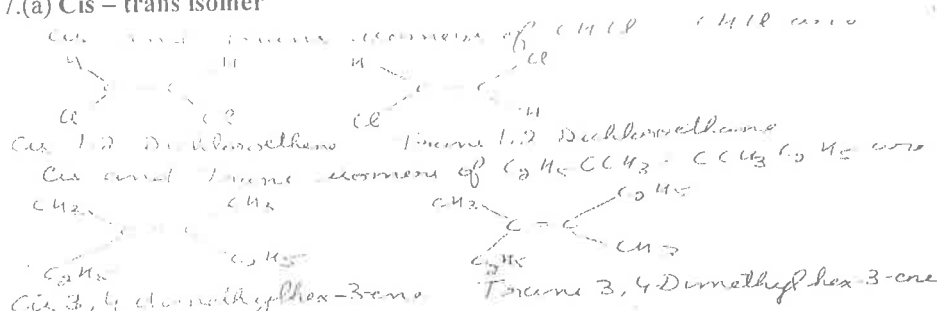 7.(a) Cis – trans isomer
Cis and trans isomers of CHCl CHCl are
H H H Cl
C C C
Cl Cl Cl H
Cis 1.2 Dichloroethene Trans 1.2 Dichloroethene
Cis and Trans isomers of C2H5CCH3 = CCH3C2H5 are
CH3 CH3 CH3 C2H5
C = C
C2H5 C2H5 C2H5 CH3
Cis 3,4 dimethylhex-3-ene Trans 3,4 Dimethylhex 3-ene